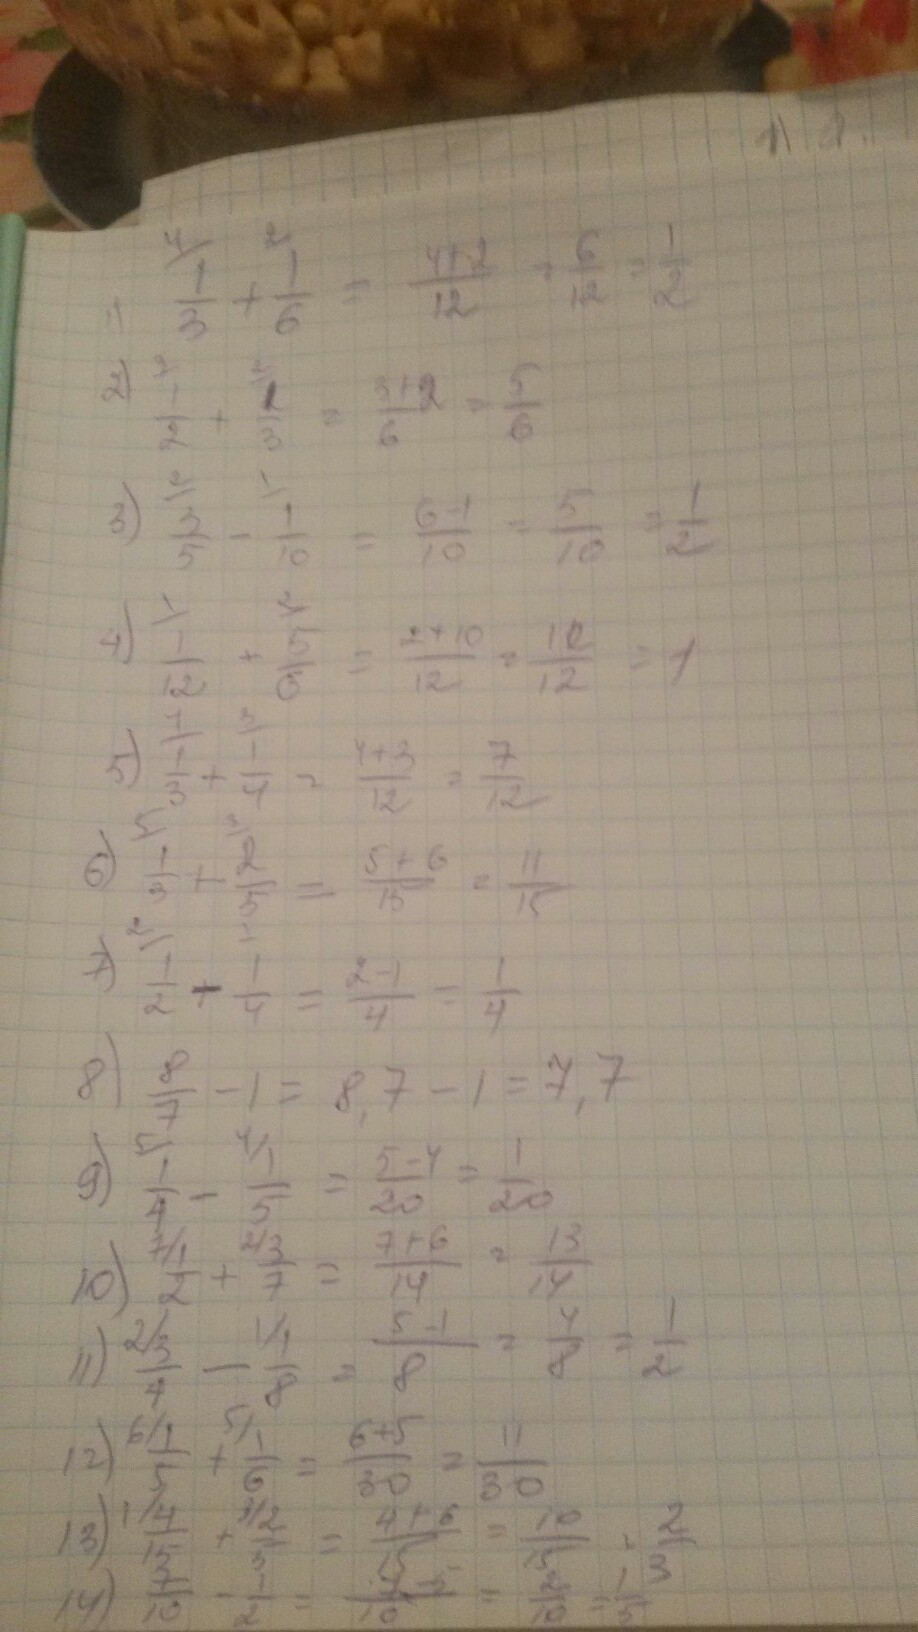 1) 4/ 1/3 + 2/ 1/6 = (4+2)/12 = 6/12 = 1/2
2) 3/ 1/2 + 2/ 1/3 = (3+2)/6 = 5/6
3) 2/ 3/5 - 1/ 1/10 = (6-1)/10 = 5/10 = 1/2
4) 1/ 1/12 + 2/ 5/6 = (2+10)/12 = 12/12 = 1
5) 4/ 1/3 + 3/ 1/4 = (4+3)/12 = 7/12
6) 5/ 1/3 + 3/ 2/5 = (5+6)/15 = 11/15
7) 2/ 1/2 - 1/4 = (2-1)/4 = 1/4
8) 8/7 - 1 = 8,7 - 1 = 7,7
9) 5/ 1/4 - 4/ 1/5 = (5-4)/20 = 1/20
10) 7/ 1/2 + 2/ 3/7 = (7+6)/14 = 13/14
11) 2/ 3/4 - 1/ 1/8 = (5-1)/8 = 4/8 = 1/2
12) 6/ 1/5 + 5/ 1/6 = (6+5)/30 = 11/30
13) 1/ 4/15 + 3/ 2/5 = (4+6)/15 = 10/15 = 2/3
14) 7/10 - 1/2 = (7-5)/10 = 2/10 = 1/5